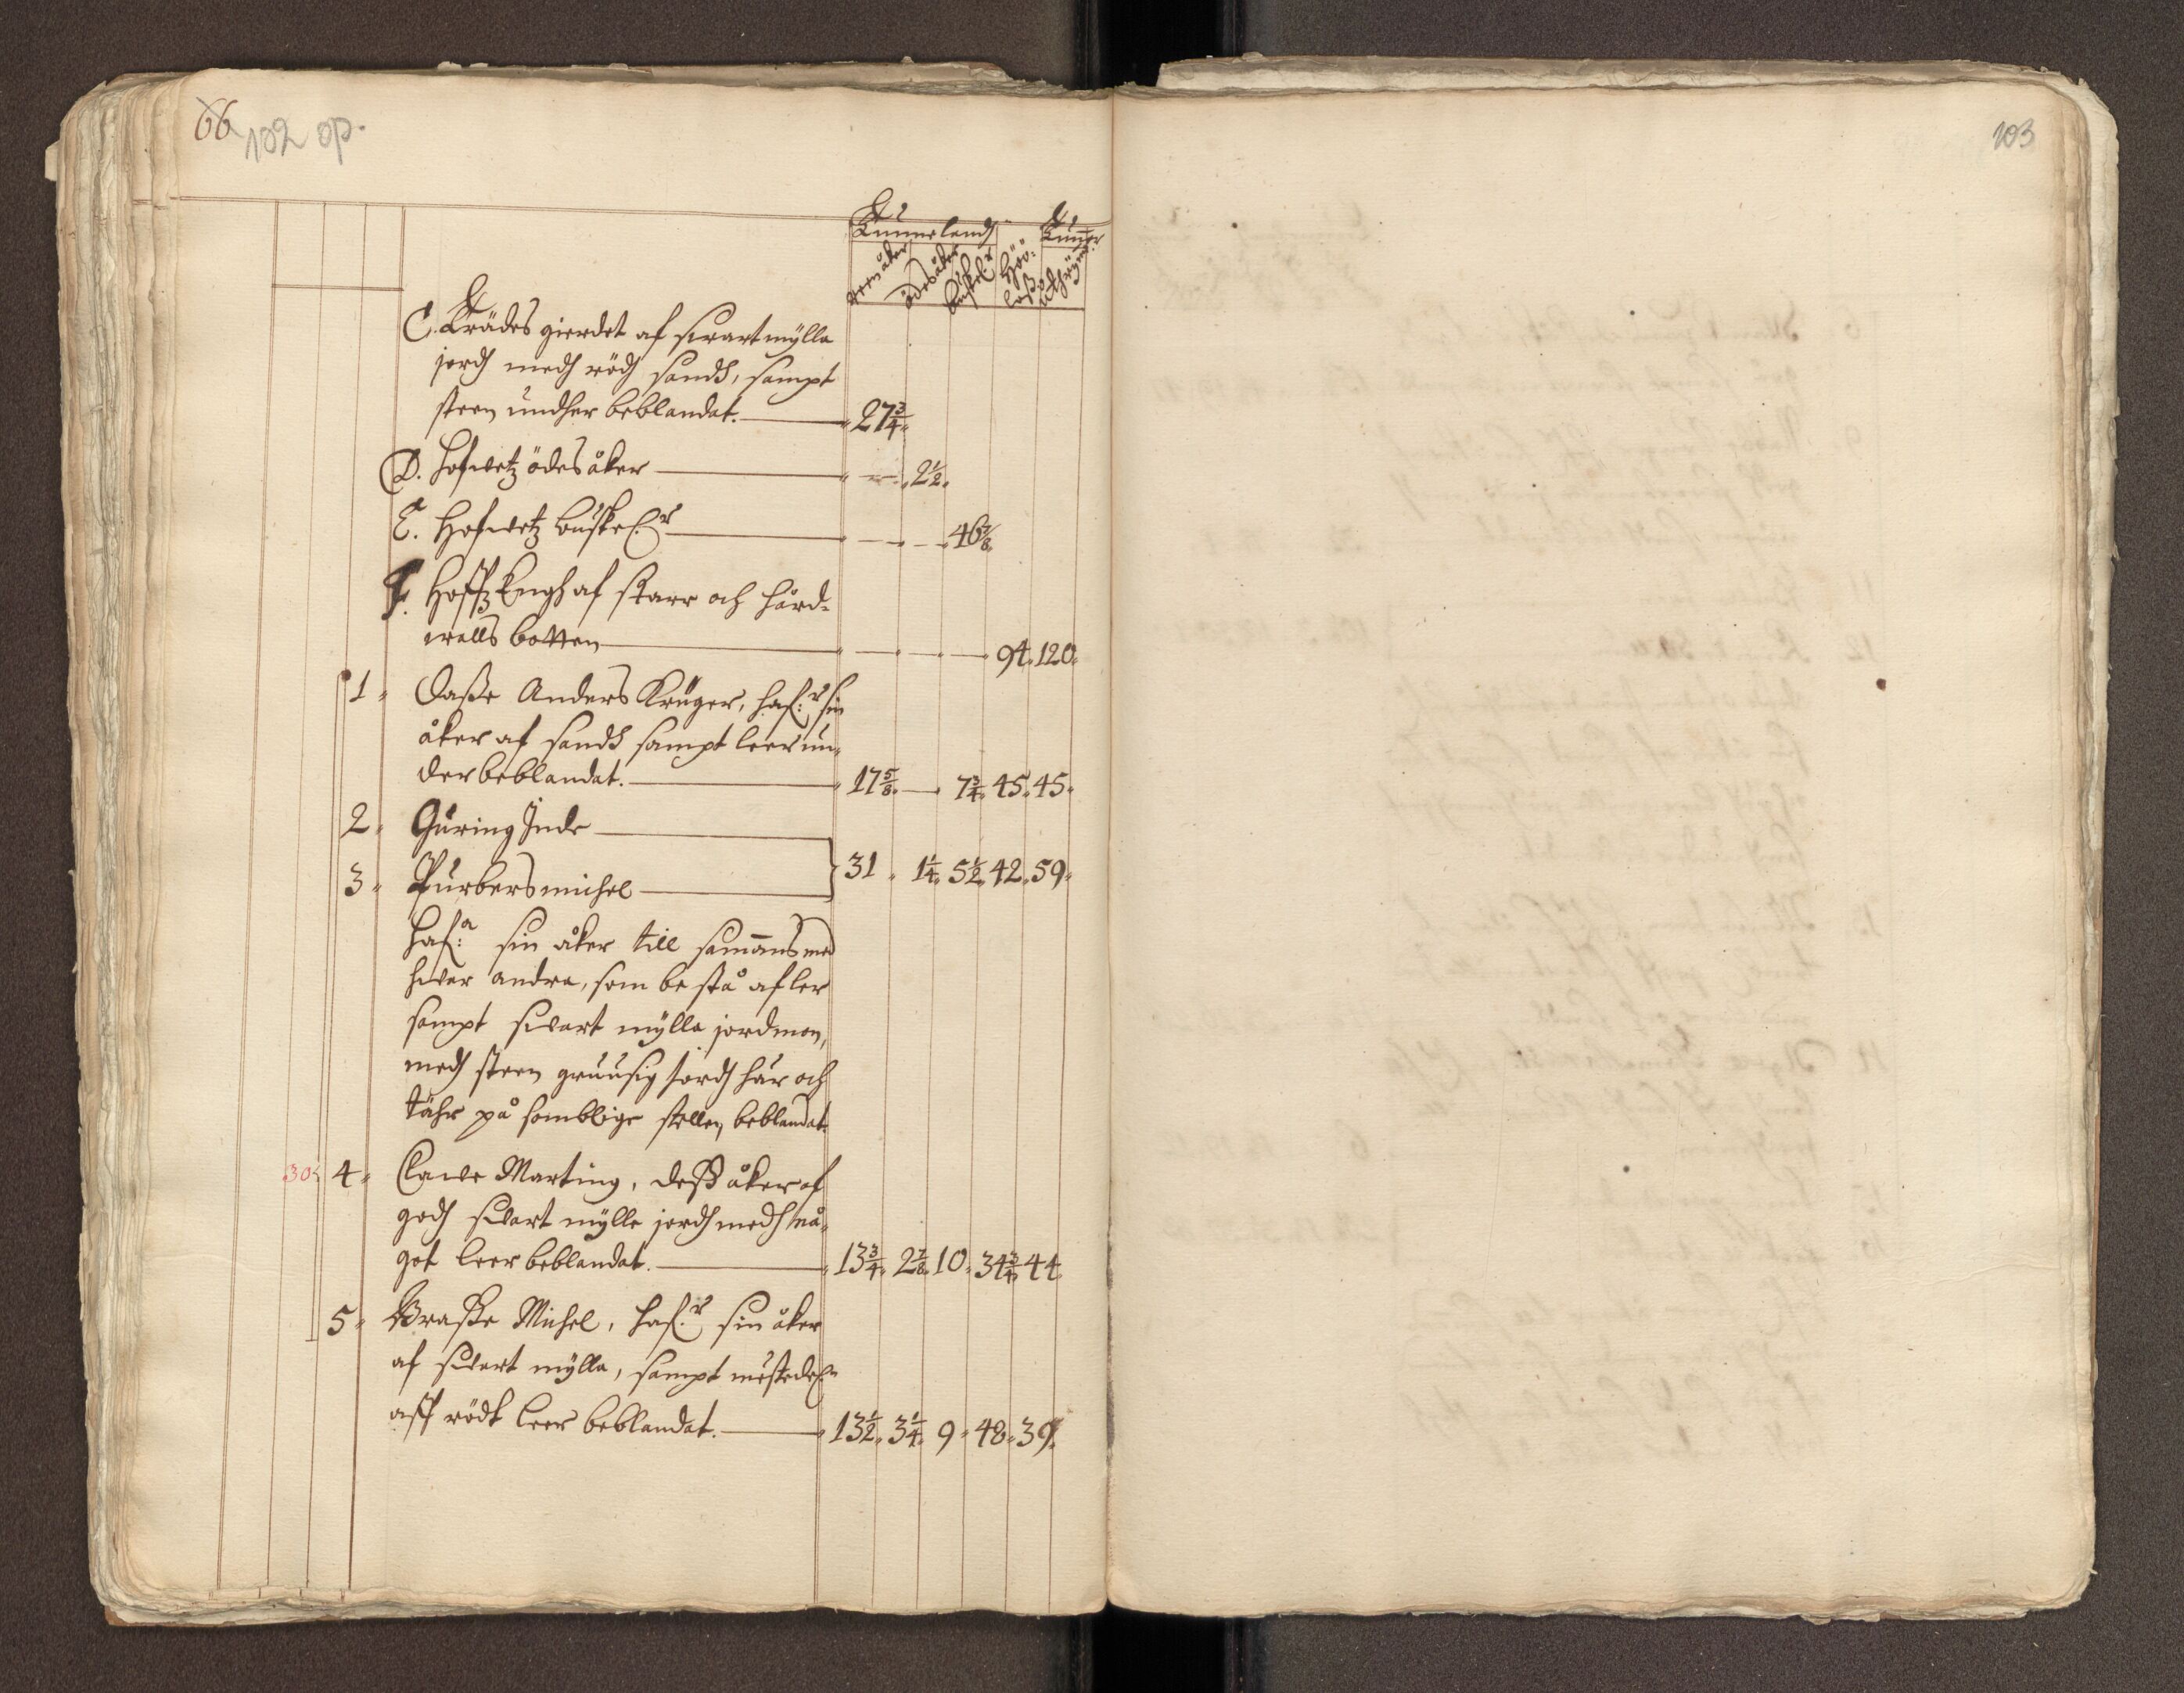 66
102 op.
103
Tunnelandh
Tunner
reen åker
ödesåker
buskel.r
Höö-
lass
uthsäde
C. Trädes gierdet af swart mylla
jordh medh rödh sandh, sampt
steen undher beblandat. 27 3/4
D. Hofwetz ödes åker 2 1/2
E. Hofwetz buskel.r 46 7/8
F. Hoffz Engh af starr och hård-
walls botten 94. 120.
1. Dasse Anders Krüger, haf:r sin
åker af sandh sampt leer un-
der beblandat. 17 5/8. 7 3/4. 45. 45.
2. Guring Inde
3. Purbers michel } 31. 1 1/4. 5 1/2. 42. 59.
haf:a sin åker till samans med
hwar andra, som bestå af ler
sampt swart mylla jordmon,
medh steen gruusig jordh här och
tähr på somblige ställen beblandat.
30. 4. Clawe Marting, dess åker af
godh swart mylle jordh medh nå-
got leer beblandat. 13 3/4. 2 7/8. 10. 34 3/4. 44.
5. Braske Michel, haf:r sin åker
af swart mylla, sampt mästedel.n
aff rödt leer beblandat. 13 1/2. 3 1/4. 9. 48. 39.